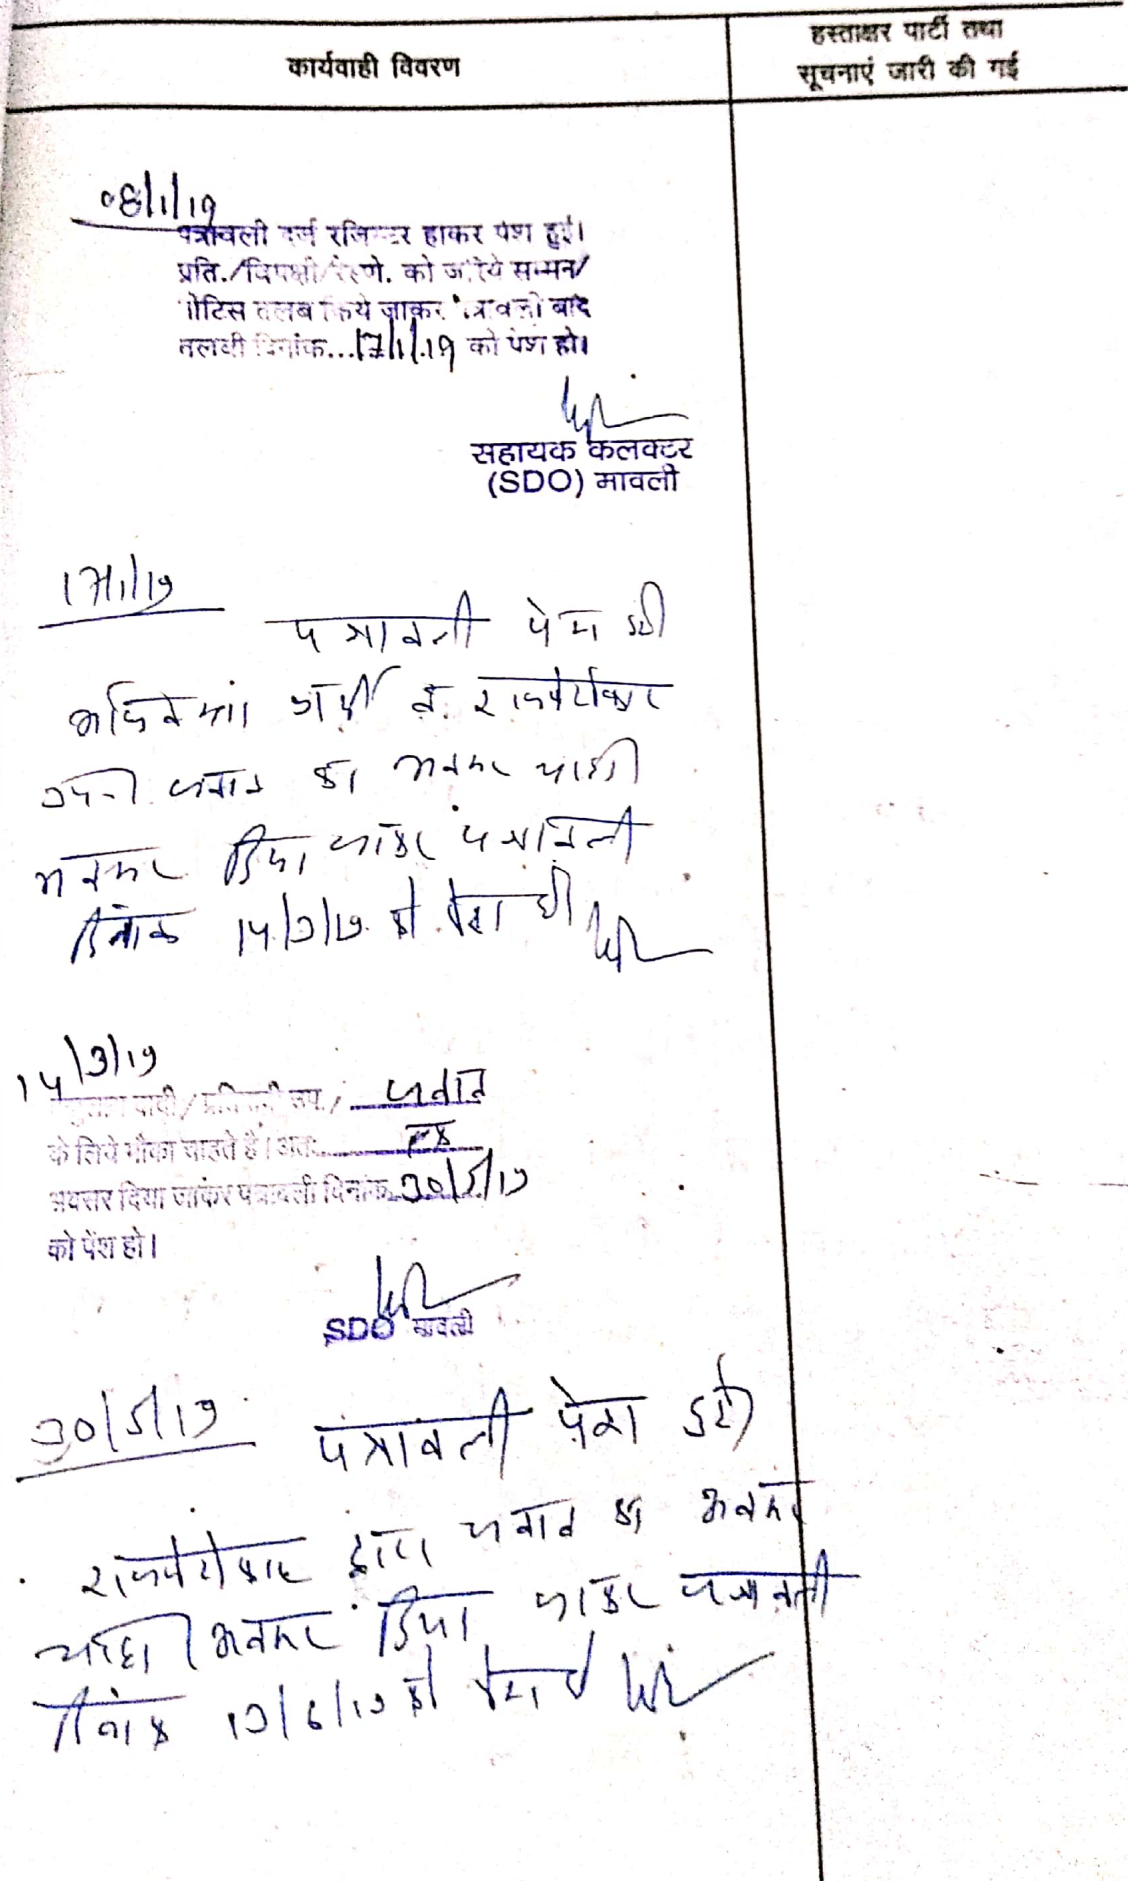 कार्यवाही विवरण
हस्ताक्षर पार्टी तथा
सूचनाएं जारी की गई
08/1/19
पत्रावली दर्ज रजिस्टर होकर पेश हुई।
प्रति./विपक्षी/रेस्पो. को जरिये सम्मन/
नोटिस तलब किये जाकर पत्रावली बाद
तलबी दिनांक...17/1/19 को पेश हो।
सहायक कलक्टर
(SDO) मावली
17/1/19
पत्रावली पेश हुई
प्रार्थी व
जवाब का अवसर चाहा
अवसर दिया जाकर पत्रावली
दिनांक 14/3/19 को पेश हो
14/3/19
वादी/ उप./ जवाब
के लिये मौका चाहते है। अतः
अवसर दिया जाकर पत्रावली दिनांक 30/5/19
को पेंश हो।
SDO मावली
30/5/19 पत्रावली पेश हुई
द्वारा जवाब का अवसर
चाहा अवसर दिया जाकर पत्रावली
दिनांक 13/6/19 को पेश हो